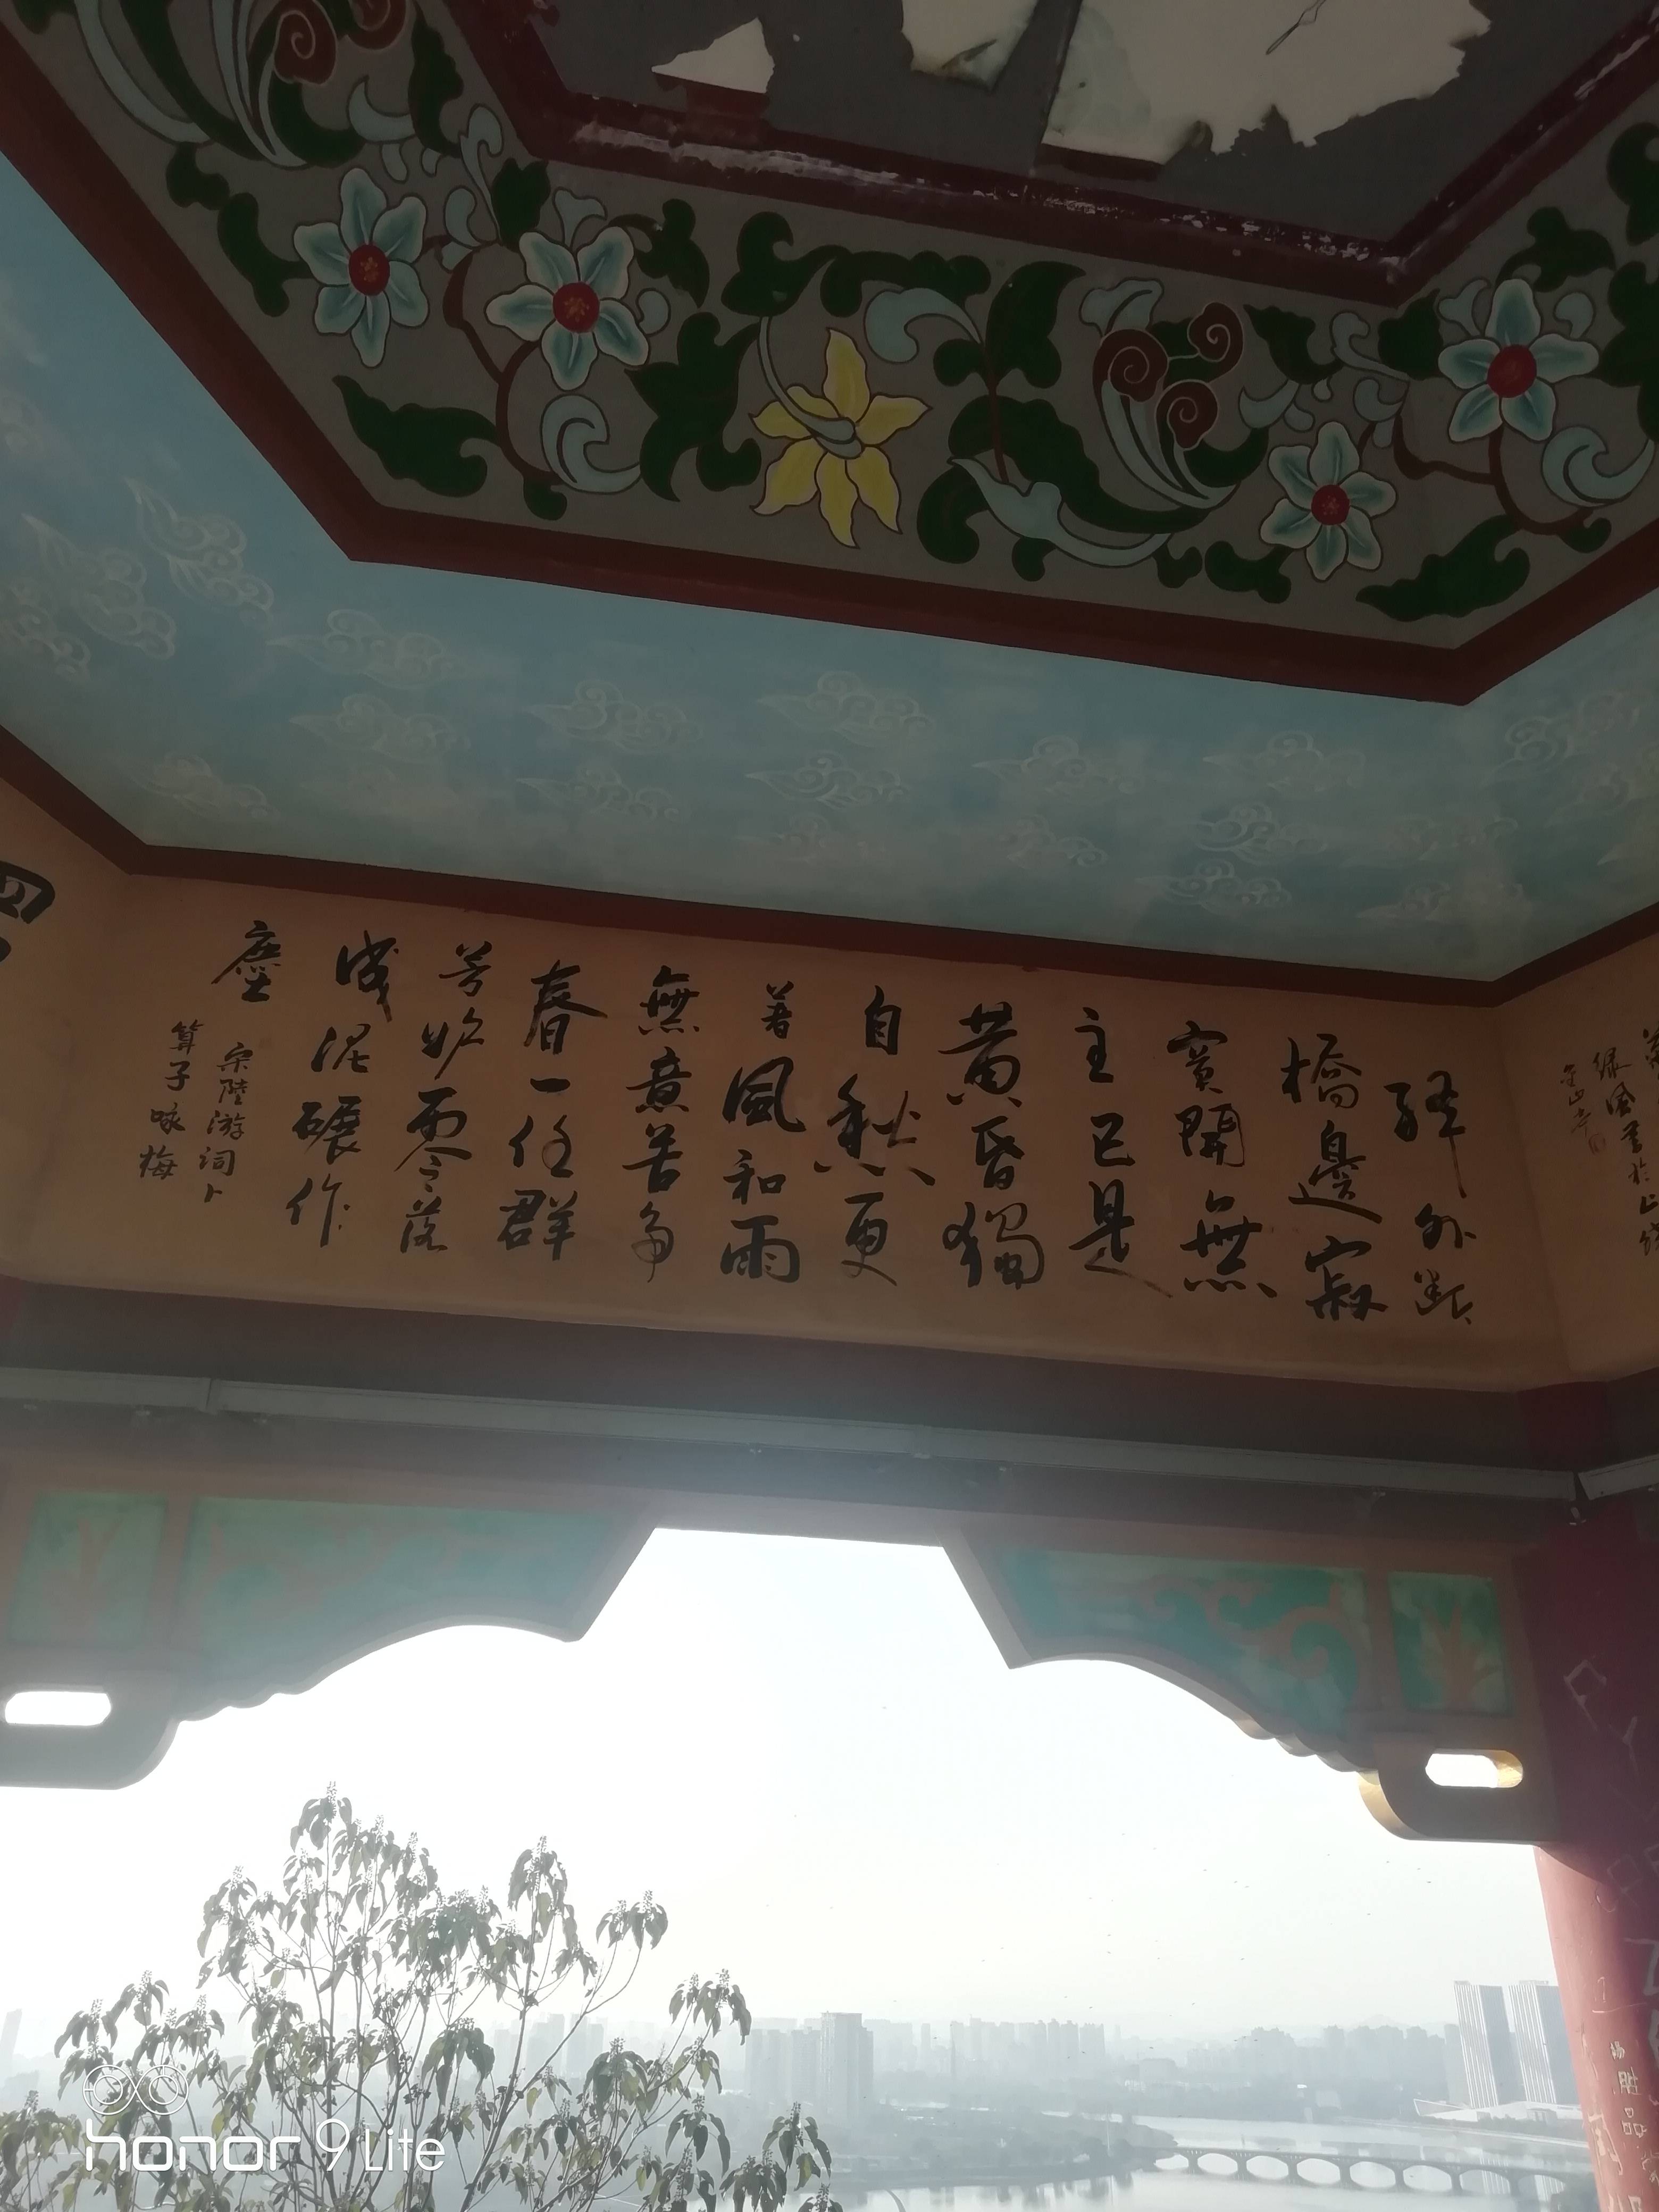 驿外斷
橋邊寂
寞開無
主已是
黄昏獨
自愁更
著風和雨
無意苦争
春一任群
芳妒零落
成泥碾作
塵
宋陸游词卜
算子咏梅
honor 9 Lite